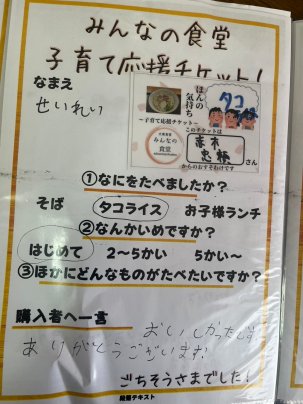 みんなの食堂
子育て応援チケット!
なまえ
せいれい
ほんの
気持ち
タコ
~子育て応援チケット~
みんなの
食堂
このチケットは
さん
からのおすそわけです
①なにをたべましたか?
そば タコライス お子様ランチ
②なんかいめですか?
はじめて 2~5かい 5かい~
③ほかにどんなものがたべたいですか?
購入者へ一言
おいしかったです
ありがとうございます!
ごちそうさまでした!
段落テキスト